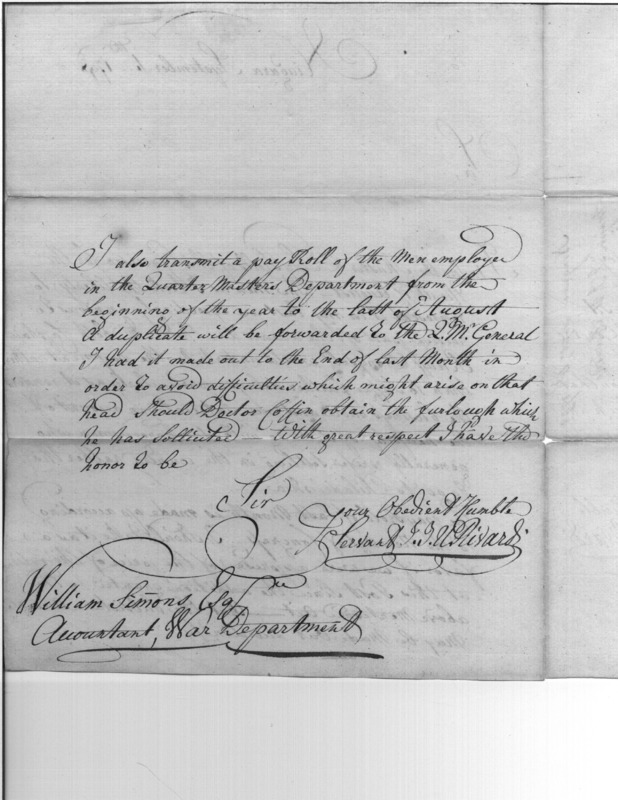 I also transmit a pay Roll of the Men employed
in the Quarter Masters Department from the
beginning of the year to the last of August
A duplicate will be forwarded to the Q. Mr. General
I had it made out to the End of last Month in
order to avoid difficulties which might arise on that
head should Doctor Coffin obtain the furlough which
he has sollicited — With great respect I have the
honor to be
Sir
your Obedient Humble
Servant J. J. U. Rivardi
William Simmons, Esqre
Accountant, War Department